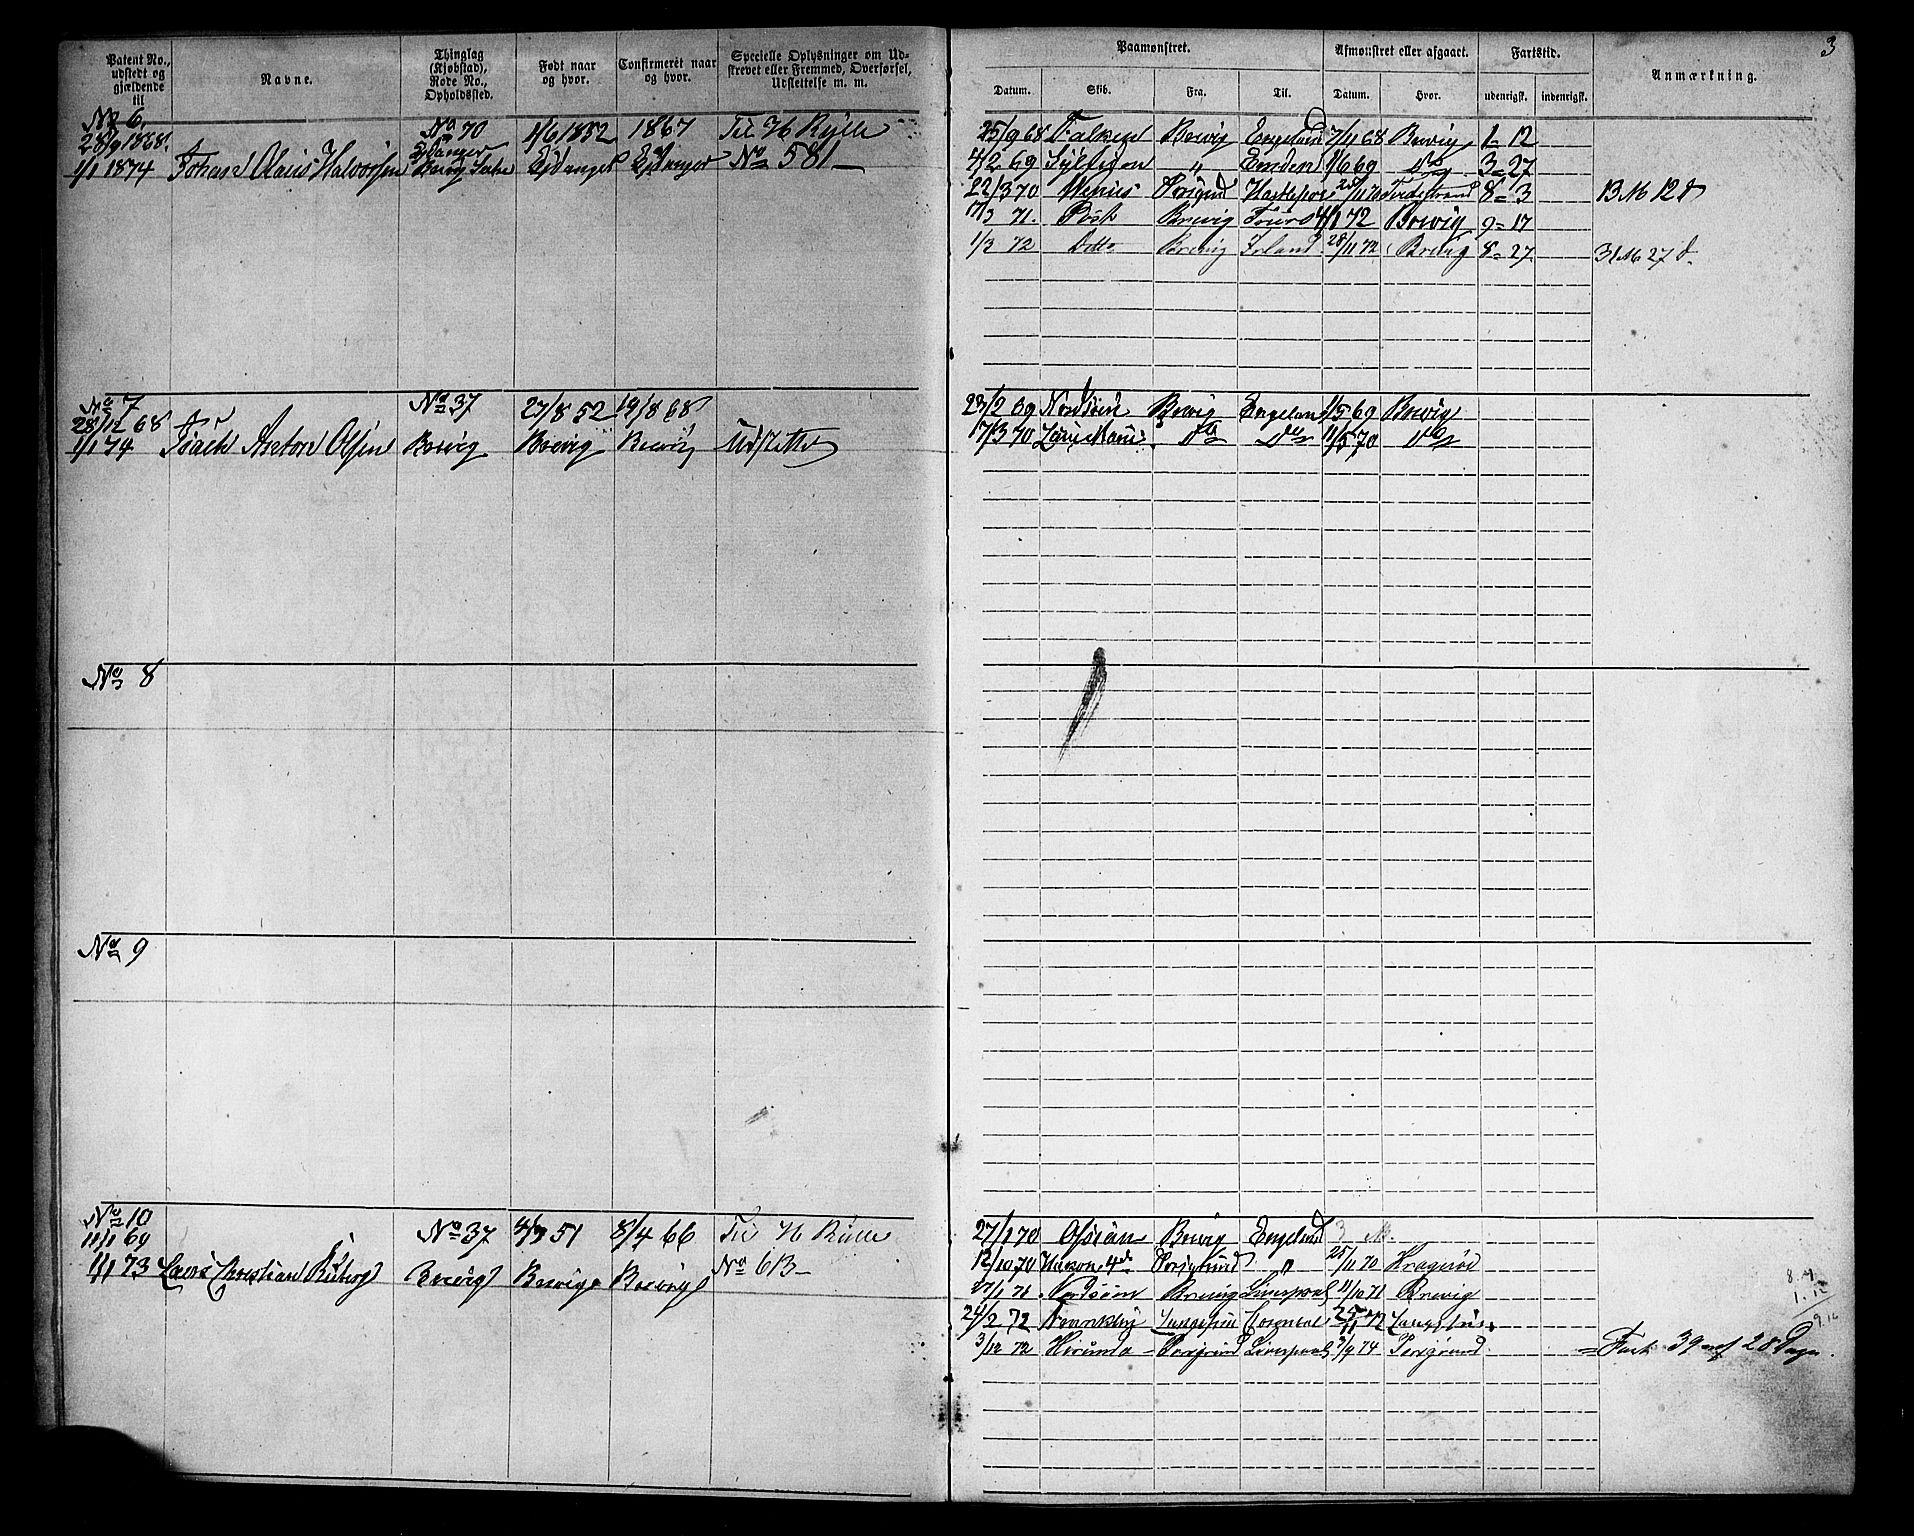 3
Patent No., udstedt og gjældende til
Navne.
Thinglag (Kjøbstad), Rode No., Opholdssted.
Født naar og hvor.
Confirmeret naar og hvor.
Specielle Oplysninger om Udstrevet eller Fremmed, Overførsel, Udslettelse m. m.
Paamønstret.
Afmønstret eller afgaaet.
Fartstid.
Anmærkning.
Datum. Skib. Fra. Til. Datum. Hvor. udenrigsk. indenrigsk.
No 6.
28/9 1868.
1/1 1874
Johan Olaus Halvorsen
No 70
Eidanger
4/6 1852
Eidanger
1867
Eidanger
Til H Rulle
No 581
25/9 68 Falken Brevig England 7/11 68 Brevig 1 = 12
4/2 69 " Emden 1/6 69 Do 3 = 27
22/3 70 Venus Porsgrund 28/11 70 8 = 3 13 M 12 d
17/3 71. Brevig 4/1 72 Brevig 9 = 17
1/3 72 Ditto Brevig Irland 28/11 72 Brevig 8 = 27. 31 M 27 d.
No 7
28/12 68
1/1 74
Isach Olsen
No 37
Brevig
27/8 52
Brevig
19/8 68
Brevig
Udslettes
23/2 69 Brevig England 1/5 69 Brevig
17/3 70 Do Do 11/5 70 Do
No 8
No 9
No 10
11/1 69
1/1 73
Lars Christian
No 37
Brevig
51
Brevig
8/4 66
Brevig
Til H Rulle
No 613
27/1 70 Brevig England 3 M.
12/10 70 Porsgrund " 25/11 70 Kragerøe
27/1 71 Nordsøen Brevig Liverpool 11/10 71 Brevig
24/2 72 Langesund
3/12 72 Hirundo Porsgrund Liverpool 3/9 74 Porsgrund. = Fart 39 28 Dage.
8. 4
1. 12
9. 16